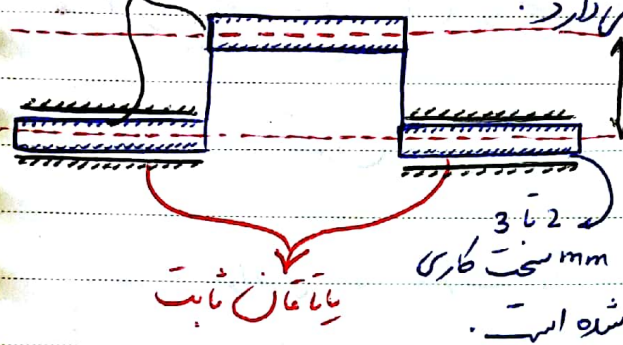 دارد.
2 تا 3
mm سخت کاری
شده است.
یاتاقان ثابت